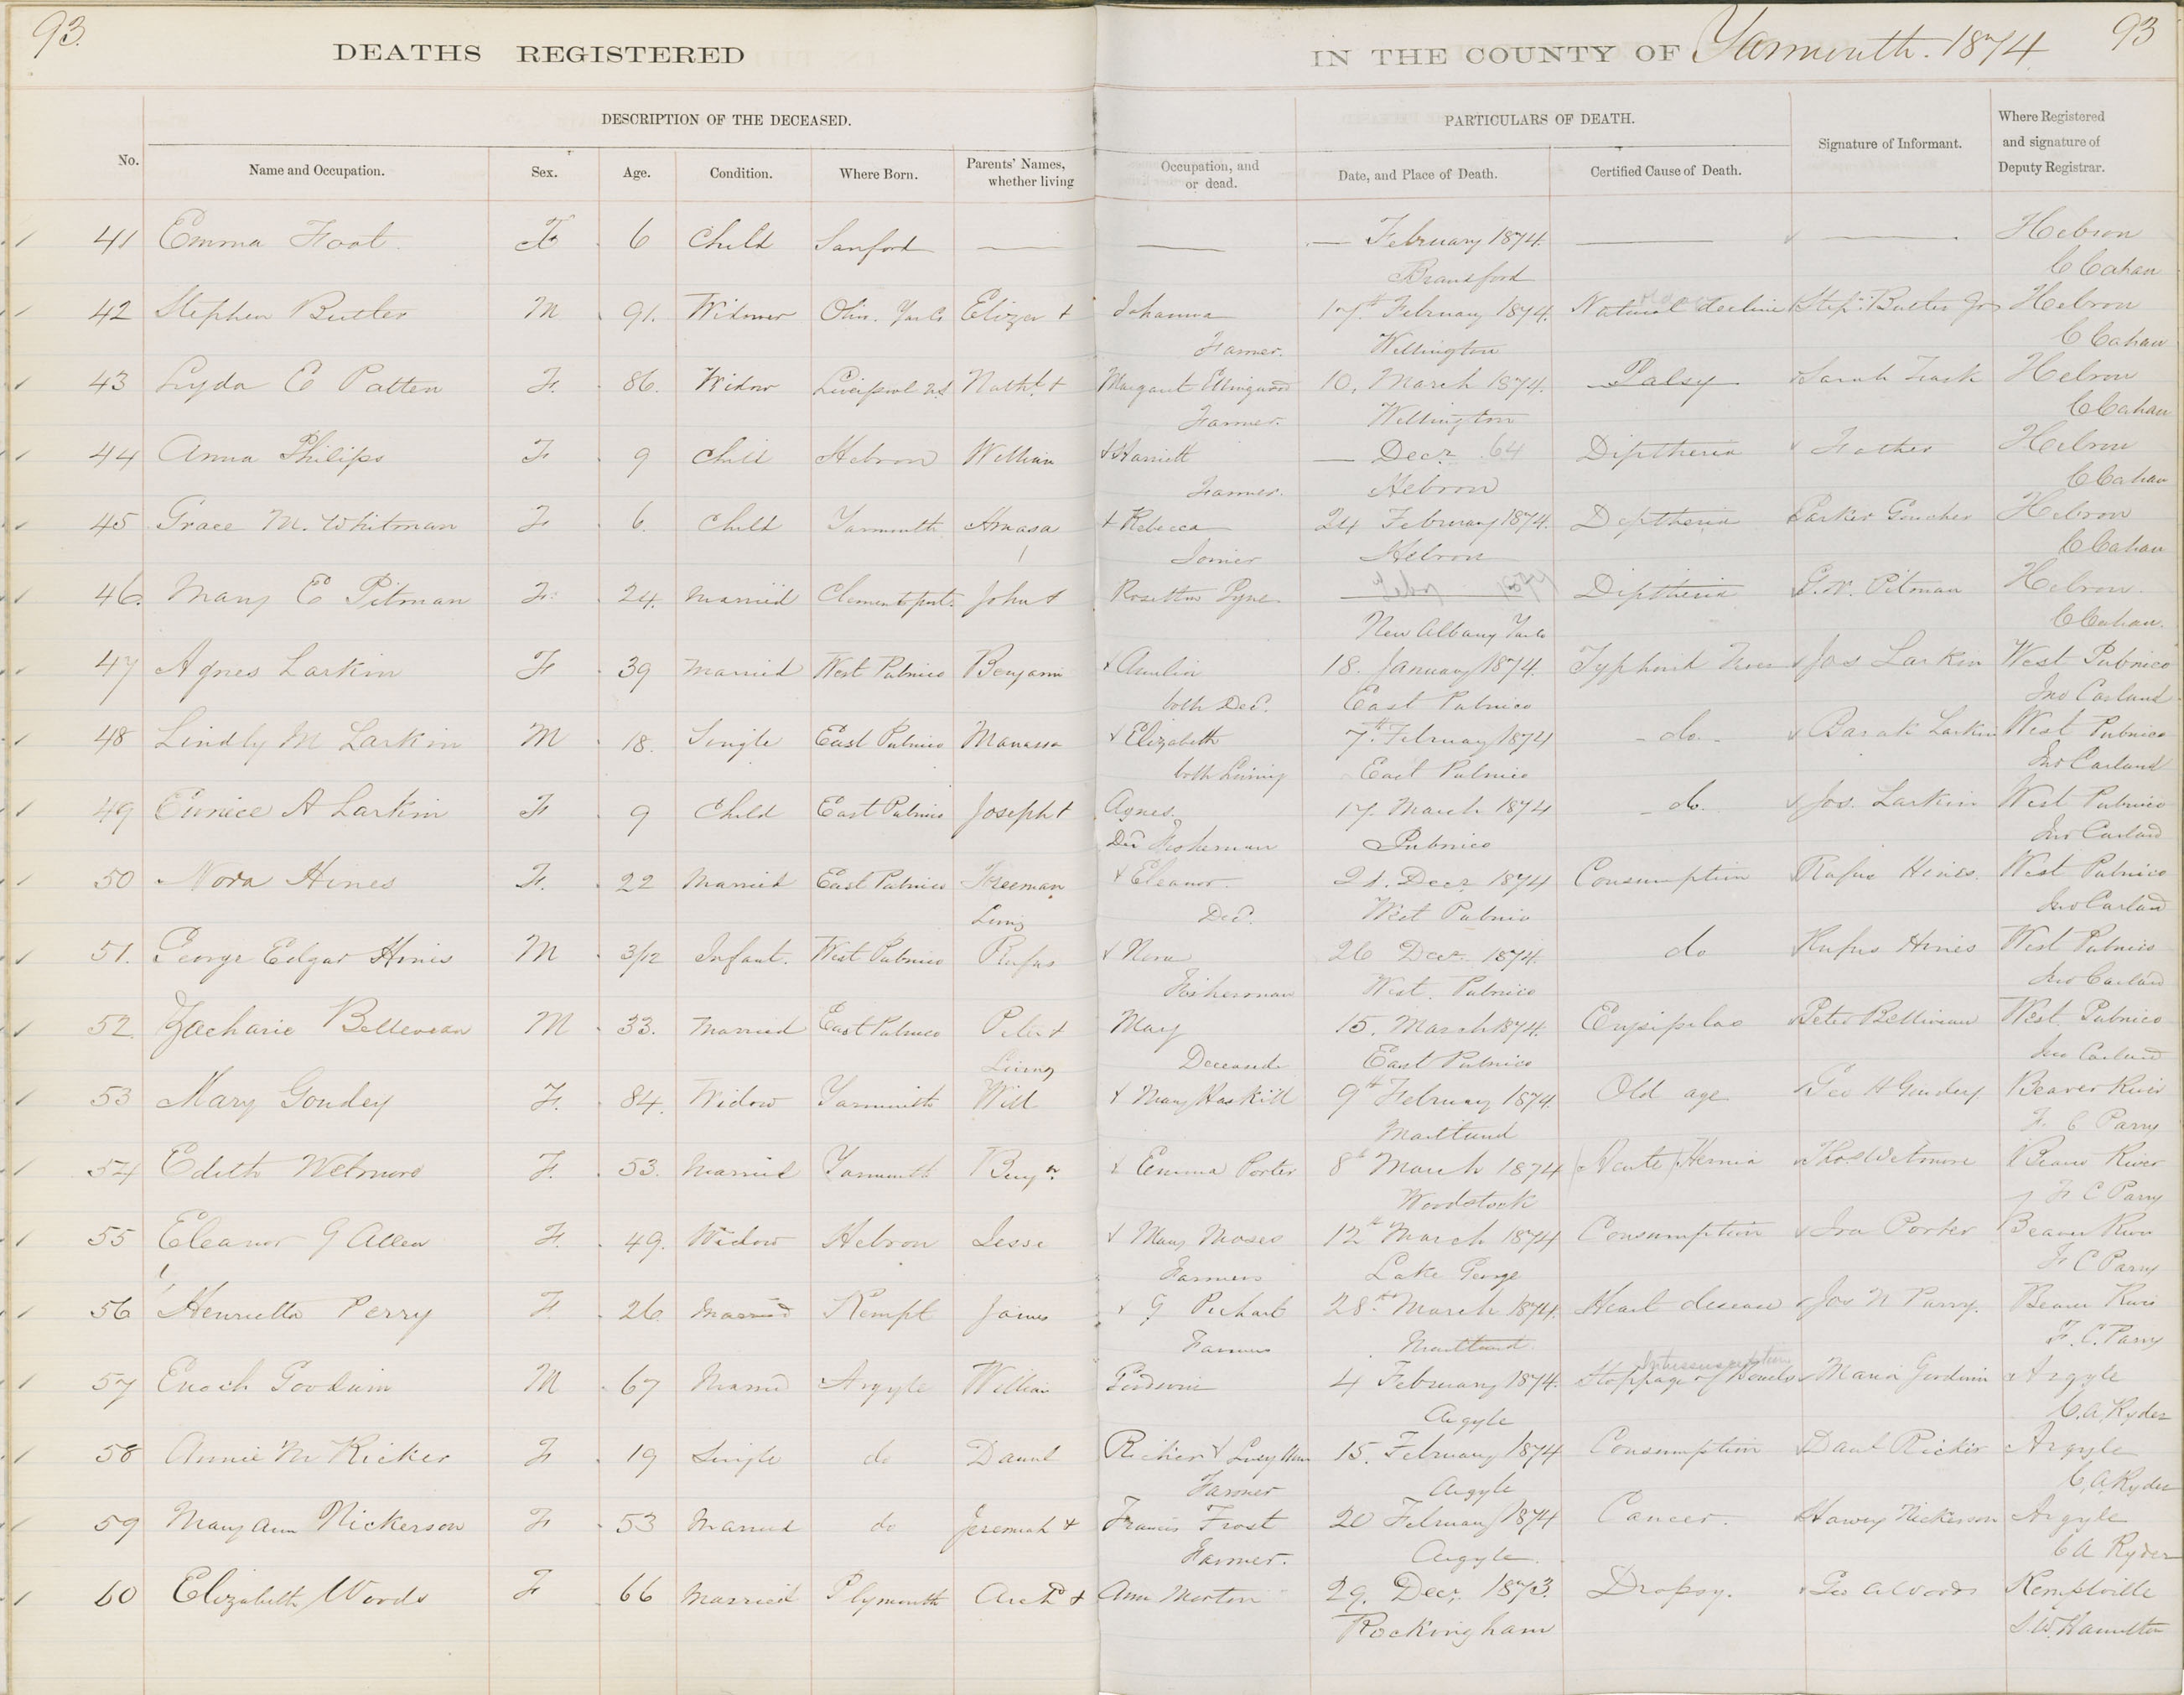 93. 93
DEATHS REGISTERED IN THE COUNTY OF Yarmouth. 1874
DESCRIPTION OF THE DECEASED. PARTICULARS OF DEATH.
No. Name and Occupation. Sex. Age. Condition. Where Born. Parents' Names, whether living Occupation, and or dead. Date, and Place of Death. Certified Cause of Death. Signature of Informant. Where Registered and signature of Deputy Registrar.
41 Emma Foot F 6 Child Sanford — — — February 1874. — — Hebron
C Cahan
42 Stephen Butler M 91. Widower Ohio. Yar Co Elizer + Johanna 17th February 1874. Natural decline Step. Butler Jr Hebron
Farmer. Wellington C Cahan
43 Lyda C Patten F. 86. Widow Liverpool N.S Nathl. + Margaret Ellingwood 10, March 1874. Palsy Sarah Trask Hebron
Farmer. Wellington C Cahan
44 Anna Philips F 9 Child Hebron William + Harriett — Decr. 64 Diptheria Father Hebron
Farmer. Hebron C Cahan
45 Grace M. Whitman F 6. Child Yarmouth Amasa + Rebecca 24 February 1874. Diptheria Parker Goucher Hebron
Joiner Hebron C Cahan
46. Mary E Pitman F. 24. Married Clementsport. John + Pyne — Diptheria G. W. Pitman Hebron.
New Albany C Cahan.
47 Agnes Larkin F 39 Married West Pubnico Benjamin + Amelia 18. January 1874. Typhoid Fever Jos Larkin West Pubnico
both Decd. East Pubnico Jno Carland
48 Lindly M Larkin M 18. Single East Pubnico Manassa + Elizabeth 7th February 1874 do. Larkin West Pubnico
both Living East Pubnico Jno Carland
49 Eunice A Larkin F 9 Child East Pubnico Joseph + Agnes. 17. March 1874 do. Jos. Larkin West Pubnico
Dec Fisherman Pubnico Jno Carland
50 Nora Hines F. 22 Married East Pubnico Freeman + Eleanor 21. Decr 1874 Consumption Rufus Hines. West Pubnico
Living Decd. West Pubnico Jno Carland
51. George Edgar Hines M 3/12 Infant. West Pubnico Rufus + Nora 26 Decr. 1874. do Rufus Hines West Pubnico
Fisherman West. Pubnico Jno Carland
52 Zacharie Belleveau M 33. Married East Pubnico Peter + Mary 15. March 1874. Erysipelas Peter Belliveau West Pubnico
Living Deceased East Pubnico Jno Carland
53 Mary Goudey F. 84. Widow Yarmouth Will + Mary Haskill 9th February 1874. Old age Geo H Goudey Beaver River
Maitland F C Parry
54 Edith Wetmore F. 53. Married Yarmouth Benjn. + Emma Porter 8th March 1874 (Acute) Hernia Thos Wetmore Beaver River
Woodstock F C Parry
55 Eleanor G Allen F. 49. Widow Hebron Jesse + Mary Moses 12th March 1874 Consumption Ira Porter Beaver River
Farmers Lake George F C Parry
56 Henrietta Perry F. 26 Married Kempt James + G 28th March 1874. Heart desease Jos N Parry. Beaver River
Farmers Maitland F. C. Parry
57 Enoch Goodwin M 67 Married Argyle William Goodwin 4 February 1874. Stoppage of bowels Intussusception Maria Goodwin Argyle
Argyle C. A. Ryder
58 Annie M Ricker F 19 Single do Danel Ricker + Lucy Ann 15. February 1874 Consumption Danl Ricker Argyle
Farmer Argyle C, A Ryder
59 Mary Ann Nickerson F 53 Married do Jeremiah + Francis Frost 20 February 1874 Cancer. Harvey Nickerson Argyle
Farmer. Argyle. C A Ryder
60 Elizabeth Woods F 66 Married Plymouth Archd + Ann Morton 29. Decr, 1873. Dropsy. Geo A Woods Kemptville
Rockingham S. W. Hamilton